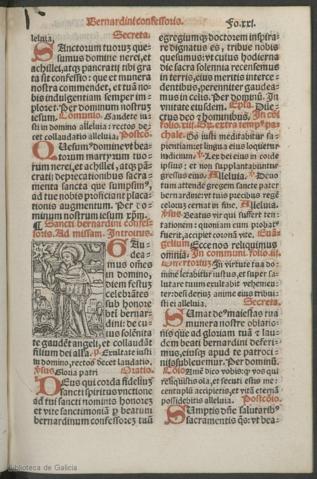 Bernardini confessoris.
Fo.xxi.
leluia,
Secreta.
SAnctorum tuorum que-
sumus domine nerei, et
achillei, atque pancratij tibi gra
ta sit confessio: que et munera
nostra commendet, et tuā no-
bis indulgentiam semper im-
ploret. Per dominum nostrum
iesum. Cōmunio. Gaudete iu-
sti in domino alleluia: rectos de-
cet collaudatio alleluia. Postcō.
QUesumꝰ domine vt bea-
torum martyrum tuo-
rum nerei, et achillei, atqꝫ pā-
cratij deprecationibus sacra-
menta sancta que sumpsimꝰ,
ad tue nobis proficiant placa-
tionis augmentum. Per do-
minum nostrum iesum xp̄m.
¶ Sancti bernardini confes-
soris. Ad missam. Introitus.
GAu-
dea-
mus oēs
in domino,
diem festum
celebrātes
sub honore
bti bernar-
dini: de cu-
ius solēnita
te gaudēt angeli, et collaudāt
filium dei alla. p̄. Exultate iusti
in domino, rectos decet laudatio.
Vſus Gloria patri
Oratio.
DEus qui corda fidelium
sancti spiritus vnctione
ad tui sancti nominis honorem
et vite sanctimoniā per beatum
bernardinum confessorē tuū
egregiumqꝫ doctorem inspira-
re dignatus es, tribue nobis
quesumus: vt cuius hodierna
die sacra solemnia recensemus
in terris, eius meritis interce-
dentibus, perenniter gaudea-
mus in celis. Per dominū. In
vnitate eiusdem. Epl̄a. Dile-
ctus deo et hominibus. In cō
folio. xiii. Gr. extra tempꝰ pa-
schale. Os iusti meditabitur sa-
piētiam: et lingua eius loquetur
iudicium. ℣. Lex dei eius in corde
ipsius: et non supplantabūntur
gressus eius. Alleluia. ℣. Deuo
tum attende gregem sancte pater
bernardine: vt tuis precibus rege
celorū cernat in fine. Alleluia.
Vſus. Beatus vir qui suffert ten-
tationem: quoniam cum probatꝰ
fuerit, accipiet coronā vite. Euā-
gelium. Ecce nos reliquimus
omnia. In communi. folio.iii.
Offertorium. In virtute tua do-
mine letabitur iustus, et super sa-
lutare tuum exultabit vehemen-
ter: desideriū anime eius tribui-
sti ei alleluia.
Secreta.
SUmat de maiestas tua
munera nostre oblatio-
nis que ad gloriam tuā et lau-
dem beati bernardini deferi-
mus, eiusqꝫ apud te patroci-
nijs subleuemur. Per dominū.
Cōio Amē dico vobis: qꝫ vos qui
reliqistis oīa, et secuti estis me:
centuplū accipietis, et vitā eternā
possidebitis alleluia. Postcōio.
SUmptis dn̄e salutaribꝰ
sacramentis qs: vt bea-
Biblioteca de Galicia